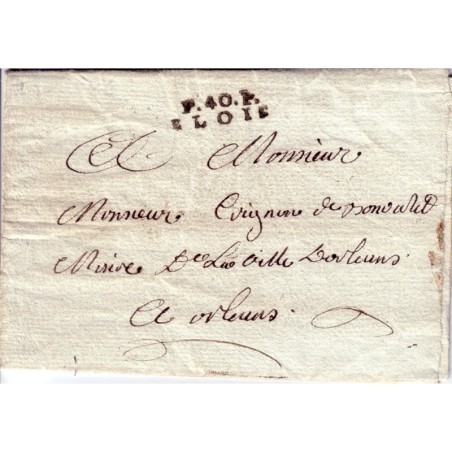 P.40.P.
BLOIS
A Monsieur
Monsieur Crignon de
Maire De La Ville Dorleans
A orleans.